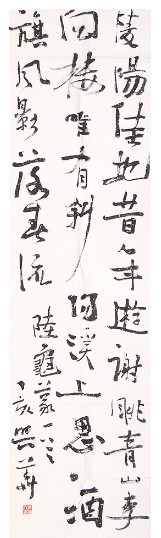 陵陽佳地昔年遊謝朓青山李
白樓唯有斜陽溪上思酒
旗風影落春流
陸龜蒙
丁亥